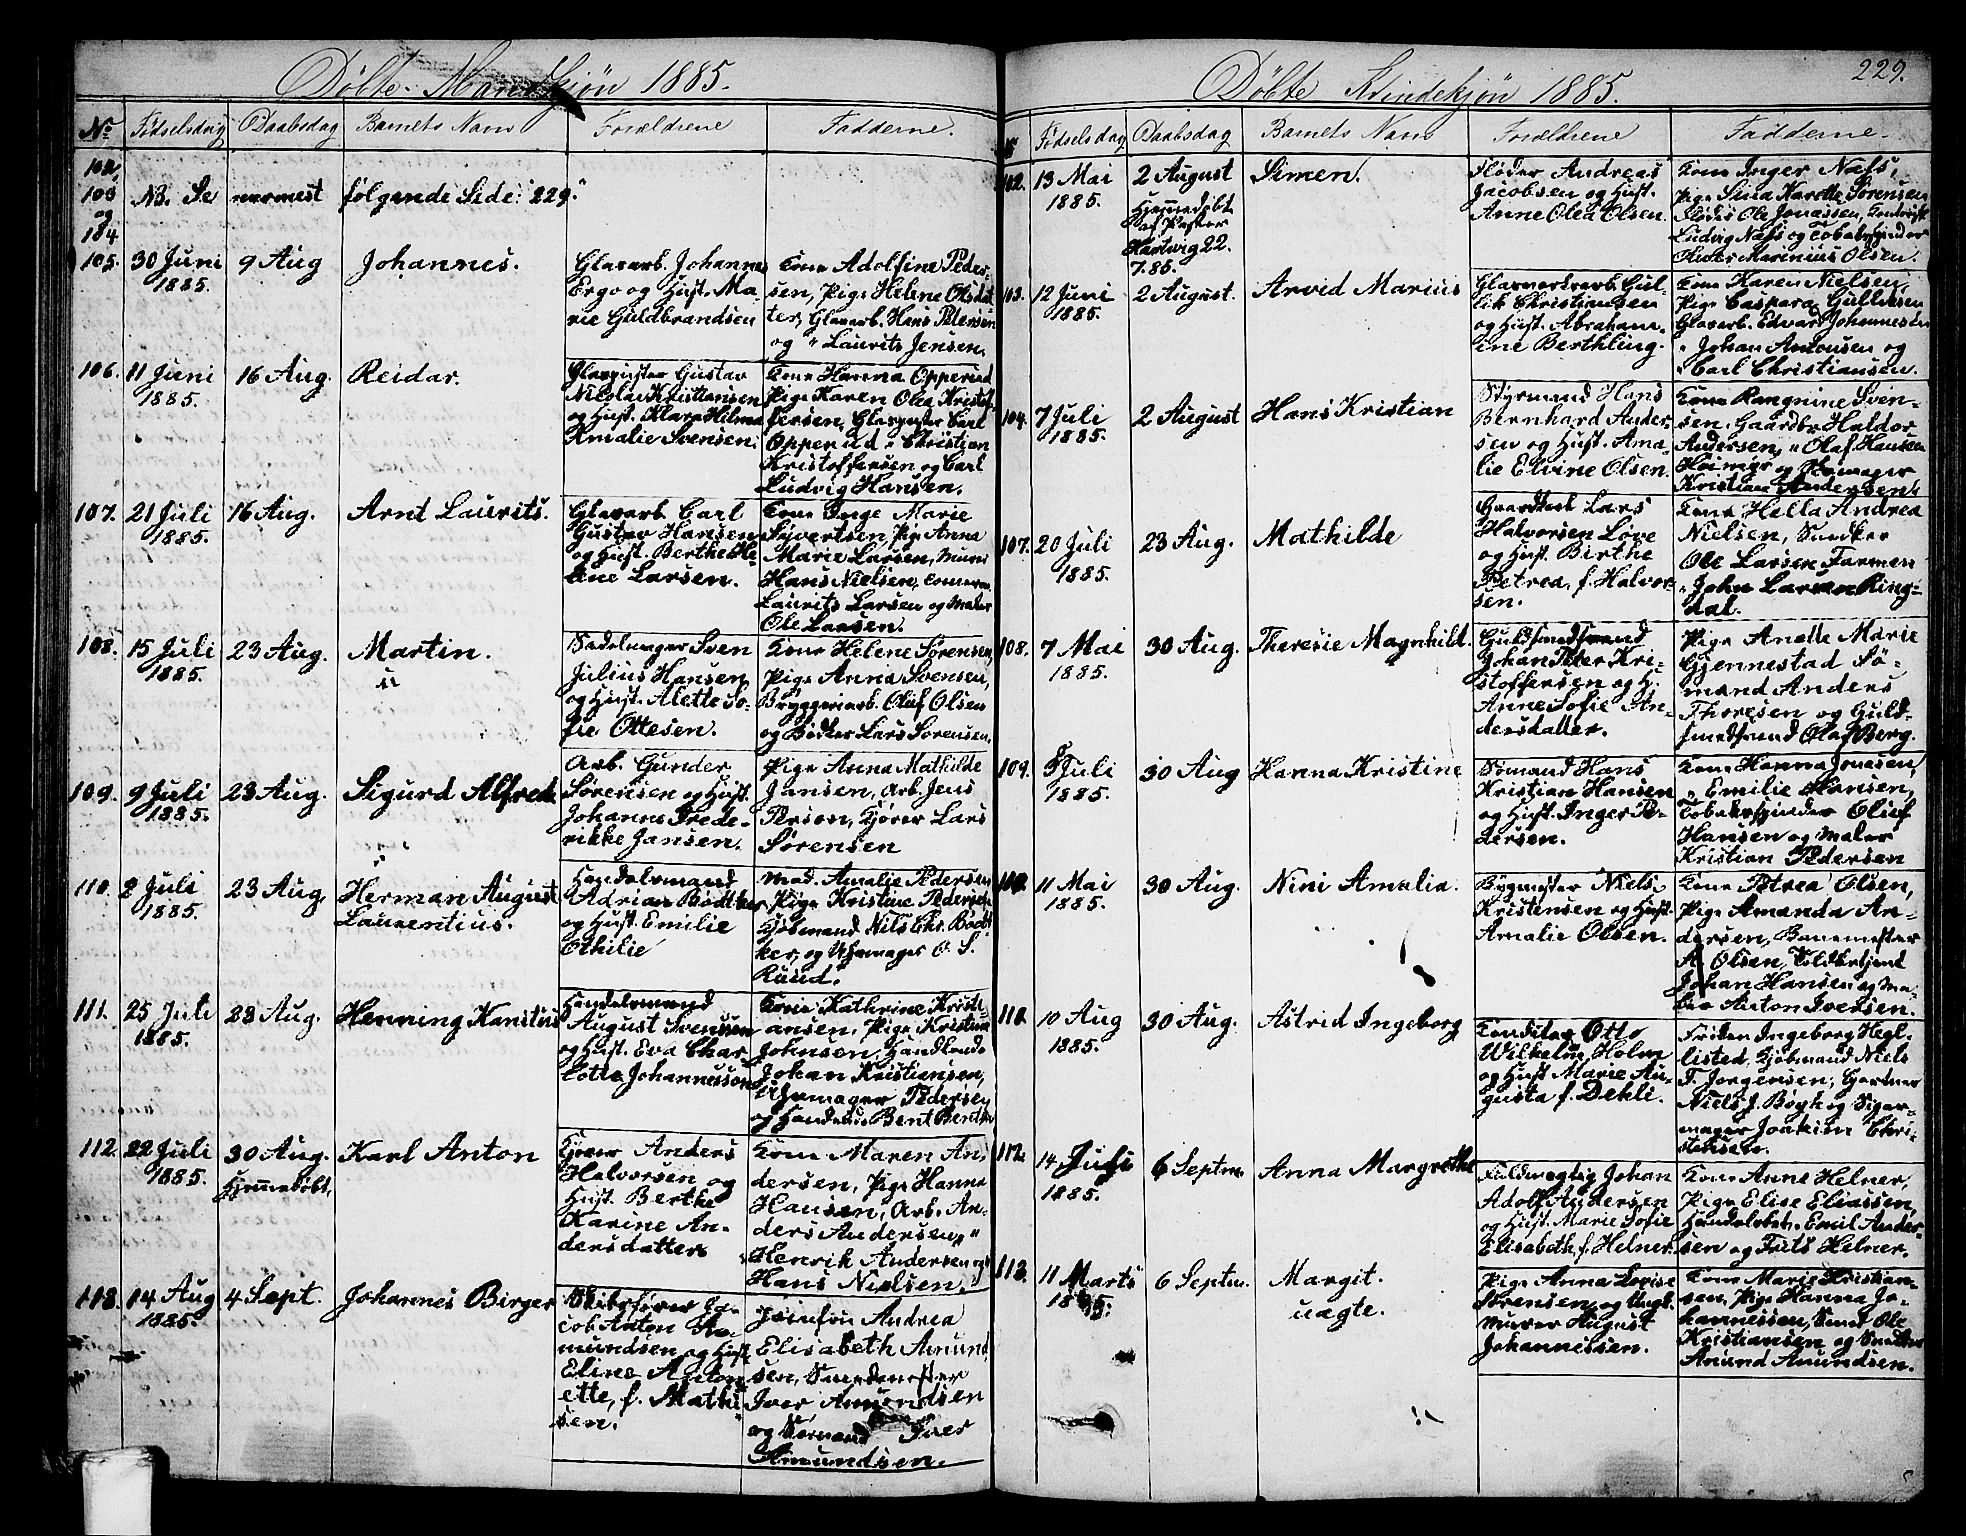 Døbte Mandkjøn 1885.
No Fødselsdag Daabsdag Barnets Navn Forældrene Fadderne.
102,
103 NB. Se nærmest følgende Side: 229.
og
104
105. 30 Juni 9 Aug Johannes.
1885.
Glasarb. Johannes
Ergo og Hust. Ma-
rie Guldbrandsen
Kone Adolfine Peder-
sen, Pige Helene Olsdat-
ter, Glasarb. Hans Petersen
og " Laurits Jensen.
106. 11 Juni 16 Aug. Reidar.
1885.
Glaspuster Gustav
Nikolai Kristiansen
og Hust. Klara Hilma
Amalie Svensen.
Kone Hanna Opperud
Pige Karen Olea Kristof-
fersen, Glaspuster Carl
Opperud, " Christian
Kristoffersen og Carl
Ludvig Hansen.
107. 21 Juli 16 Aug. Arnt Laurits.
1885.
Glasarb. Carl
Gustav Hansen
og Hust. Berthe He-
line Larsen.
Kone Inge Marie
Syvertsen, Pige Anna
Marie Larsen, Murer
Hans Nielsen,
Laurits Larsen og Maler
Ole Larsen.
108. 15 Juli 23 Aug. Martin.
1885.
Sadelmager Sven
Julius Hansen
og Hust. Alette So-
fie Ottesen.
Kone Helene Sørensen,
Pige Anna Svensen,
Bryggeriarb. Oluf Olsen
og Bødker Lars Sørensen.
109. 9 Juli 23 Aug. Sigurd Alfred.
1885.
Arb. Gunder
Sørensen og Hust.
Johanne Frede-
rikke Jansen.
Pige Anna Mathilde
Jansen, Arb. Jens
Person, Kjører Lars
Sørensen
110. 2 Juli 23 Aug. Herman August
1885. Laurentius.
Handelsmand
Adrian Bødtker
og Hust. Emilie
Othilie
Mad. Amalie Pedersen
Pige Kristine Pedersen
Kjøbmand Nils Chr. Bødt-
ker, og Uhrmager O. S.
Ruud.
111. 25 Juli 23 Aug. Henning Kanitus
1885.
Handelsmand
August Svensson
og Hust. Eva Char-
lotte Johannesson
Kone Kathrine Kristi-
ansen, Pige Kristine
Johnsen, Handlende
Johan Kristiansen,
Uhrmager Pedersen
og Handlende Bent Bentsen
112. 22 Juli 30 Aug. Karl Anton
1885. Hjemmedøbt.
Kjører Anders
Halvorsen og
Hust. Berthe
Karine An-
dersdatter
Kone Maren An-
dersen, Pige Hanna
Hansen, Arb. An-
ders Andersen, "
Henrik Andersen og
Hans Nielsen.
113. 14 Aug 4 Sept. Johannes Birger
1885.
Skibsfører Ja-
cob Anton A-
mundsen og Hust.
Eline Anton-
ette, f. Mathi-
sen.
Andrea
Elisabeth Amund-
sen, Smedemester
Iver Amundsen
og Sømand Iver
Amundsen.
Døbte Kvindekjøn 1885.
229.
No Fødselsdag Daabsdag Barnets Navn Forældrene Fadderne.
102. 13 Mai 2 August Simen.
1885. Hjemmedøbt
af Pastor
Hartwig 22.
7.85.
Fløder Andreas
Jacobsen og Hust.
Anne Olea Olsen.
Kone Inger Næss,
Pige Lina Karette Sørensen
Fløder Ole Jonassen,
Ludvig Næss og Tobakspinder
Marinius Olsen.
103. 12 Juni 2 August. Arvid Marius
1885.
Glasverksarb. Gul-
lik Christiansen
og Hust. Abraham-
ine Berthling.
Kone Karen Nielsen,
Pige Caspara Gulliksen
Glasarb. Edvard Johannesen
" Johan Antonsen og
" Carl Christiansen.
104. 7 Juli 2 August Hans Kristian
1885.
Styrmand Hans
Bernhard Ander-
sen og Hust. Ama-
lie Elvine Olsen.
Kone Rangnine Sven-
sen, Gaardbr. Haldor
Andersen, " Olaf Hansen
og
Kristian Andersen.
107. 20 Juli 23 Aug. Mathilde
1885.
Lars
Halvorsen Løve
og Hust. Birthe
Petrea, f. Halvor-
sen.
Kone Hella Andrea
Nielsen, Snedker
Ole Larsen Farmen
" John Larsen Ring-
dal.
108. 7 Mai 30 Aug. Theresie Magnhild.
1885.
Guldsmedsvend
Johan Peter Kri-
stoffersen og H.
Anne Sofie An-
dersdatter.
Pige Anette Marie
Gjennestad Sø-
mand Anders
Thoresen og Guld-
smedsvend Olaf Berg.
109. 5 Juli 30 Aug Hanna Kristine
1885.
Sømand Hans
Kristian Hansen
og Hust. Inger Pe-
dersen.
Kone Hanna Jonasen,
" Emilie Hansen,
Tobakspinder Oluf
Hansen og Maler
Kristian Pedersen
110. 11 Mai 30 Aug. Nini Amalia.
1885.
Bygmester Niels
Kristensen og Hust.
Amalie Olsen.
Kone Petrea Olsen,
Pige Amanda An-
dersen, Banemester
A. Olsen, Toldbetjent
Johan Hansen og Ma-
ler Anton Iversen.
111. 10 Aug 30 Aug. Astrid Ingeborg
1885.
Otto
Wilhelm Holm
og Hust Marie Au-
gusta f. Dehli.
Frøken Ingeborg Hegl-
listed, Kjøbmand Niels
F. Jørgensen, Gartner
Niels J. Bøgh og Sigar-
mager Joakim Chri-
stensen.
112. 14 Juli 6 Septm. Anna Margrethe
1885.
Fuldmægtig Johan
Adolf Andersen
og Hust. Marie Sofie
Elisabeth, f. Helner.
Kone Anne Helner,
Pige Elise Eliassen,
Handelsbet. Emil Ander-
sen og Frits Helner.
113. 11 Marts 6 Septm. Margit.
1885. uægte.
Pige Anna Lovise
Sørensen og Ungk.
Murer August
Johannessen.
Kone Marie Kristian-
sen, Pige Hanna Jo-
hannessen, Smed Ole
Kristiansen og
Amund Amundsen.